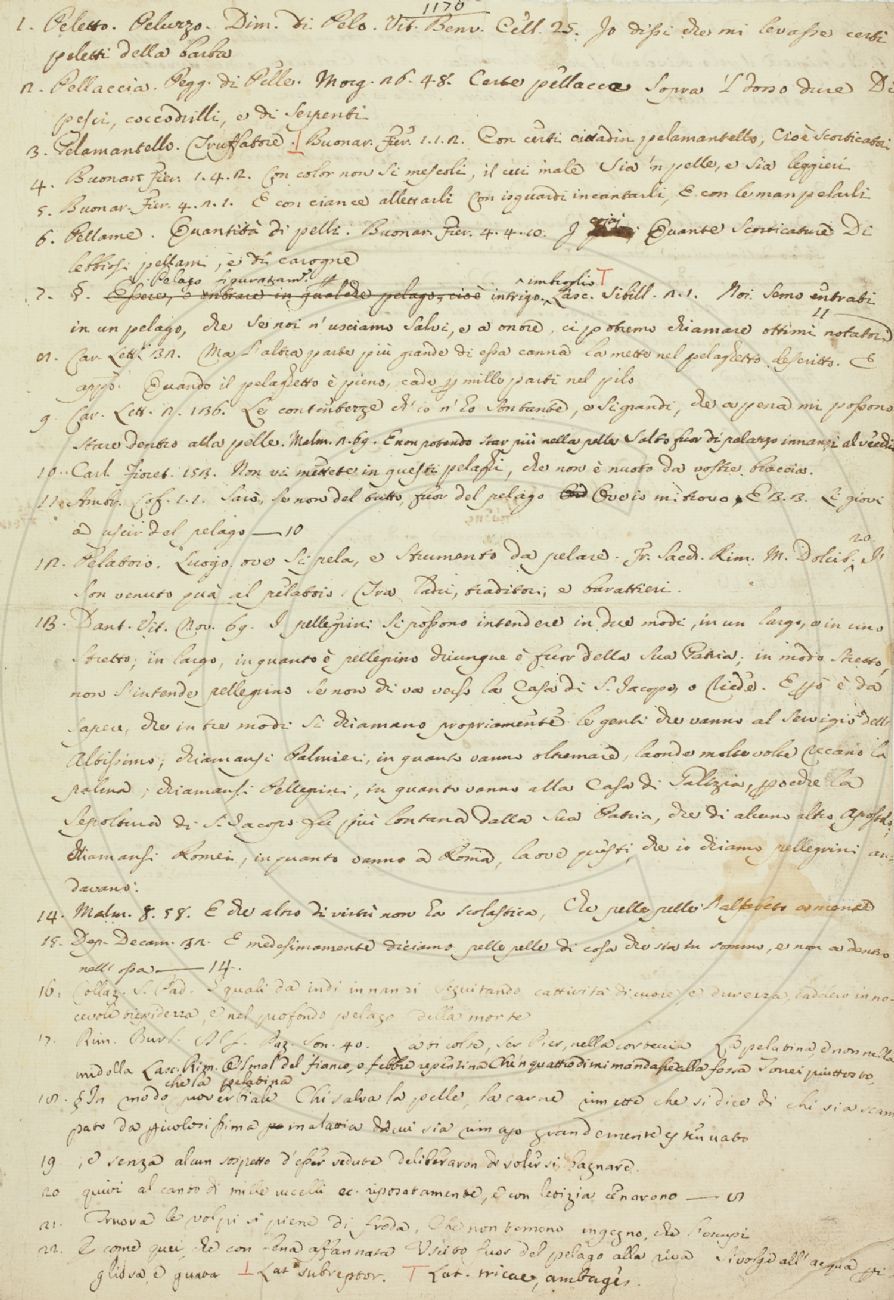 1170
1. Peletto. Peluzzo. Dim. di Pelo. Vit. Benv. Cell. 25. Io dissi che mi levasse certi
peletti della barba
2. Pellaccia. Pegg. di Pelle. Morg. 26. 48. Certe pellacce sopra 'l dosso dure Di
pesci, coccodrilli, e di serpenti
3. Pelamantello. Truffatore. Buonar. Fier. 1. 1. 2. Con certi cittadin pelamantello, Cioè scorticatori
4. Buonar. Fier. 1. 4. 2. Con color non si mescoli, il cui male Sia 'n pelle, e sia leggieri
5. Buonar. Fier. 4. 2. 1. E con ciance allettarli Con isguardi incantarli, E con le man pelarli
6. Pellame. Quantità di pelli. Buonar. Fier. 4. 4. 10. Quante scorticature Di
lebbrosi pellami, e di carogne
§. Pelago figuratam.
7. §. intrigo, imbroglio T Lasc. Sibill. 2. 1. Noi semo entrati
in un pelago, che se noi n' usciamo salvi, e a onore, ci potremo chiamare ottimi notatori
8. Car. Lett. 32. Ma l'altra parte più grande di essa canna la mette nel pelaghetto descritto. E
app. Quando il pelaghetto è pieno, cade p mille parti nel pilo
9. Car. Lett. 2. 136. Le contentezze ch' io n' ho sontante, e sì grandi, che appena mi possono
stare dentro alla pelle. Malm. 2. 69. E non potendo star più nella pelle Saltò fuor di palazzo innanzi al vecchio
10. Carl. Fioret. 153. Non vi mettete in questi pelaghi, che non è nuoto da vostre braccia.
11. Ambr. Cof. 1. 1. Sarò, se non del tutto, fuor del pelago Ove io mi trovo, E 3. 3. Le giovi
a uscir del pelago — 10
12. Pelatoio. Luogo, ove si pela, e strumento da pelare. Fr. Sacch. Rim. M. Dolcib. 20 Io
son venuto quà al pelatoio, Tra ladri, traditori, e barattieri.
13. Dant. Vit. Nov. 69. I pellegrini si possono intendere in due modi, in un largo, e in uno
stretto; in largo, in quanto è pellegrino chiunque è fuor della sua Patria; in modo stretto,
non s'intende pellegrino se non chi va verso la Casa di S. Jacopo, o riede. E però è da
sapere, che in tre modi si chiamano propriamente le genti che vanno al servigio dell'
Altissimo; chiamansi Palmieri, in quanto vanno oltremare, laonde molte volte recano la
palma; chiamansi Pellegrini, in quanto vanno alla Casa di Galizia, perchè la
Sepoltura di S. Jacopo fu più lontana dalla sua Patria, che di alcuno altro Apostolo;
chiamansi Romei, in quanto vanno a Roma, la ove questi, che io chiamo pellegrini an-
davano.
14. Malm. 8. 58. E che altro di virtù non ha scolastica, Che pelle pelle l'alfabeto a mente
15. Dep. Decam. 32. E medesimamente diciamo pelle pelle di cosa che sta in sommo, e non a dentro
nell' ossa — 14.
16. Collaz. S. Pad. I quali da indi innanzi seguitando cattività di cuore e durezza, caddero in no-
cevole tiepidezza, e nel profondo pelago della morte
17. Rim. Burl. Son. 40. colto, ser Pier, nella corteccia La pelatina e non nella
midolla Lasc. Rim. O'l mal del fianco, o febbre repentina Che'n quattro dì mi mandasse alla fossa Torrei piuttosto,
che la pelatina
18. § In modo proverbiale Chi salva la pelle, la carne rimette che si dice di chi sia scam
pato da pericolosissima malattia di cui sia rimaso grandemente estenuato
19. , e senza alcun sospetto d'esser vedute deliberaron di volersi bagnare.
20 quivi al canto di mille uccelli ec. riposatamente, e con letizia cenarono —
21. Truova le volpi sì piene di froda, Che non temono ingegno, che l'occupi
22. E come quei, che con lena affannata Uscito fuor del pelago alla riva Si volge all' acqua pe-
rigliosa, e guata Lat. subreptor. T Lat. tricae, ambages.